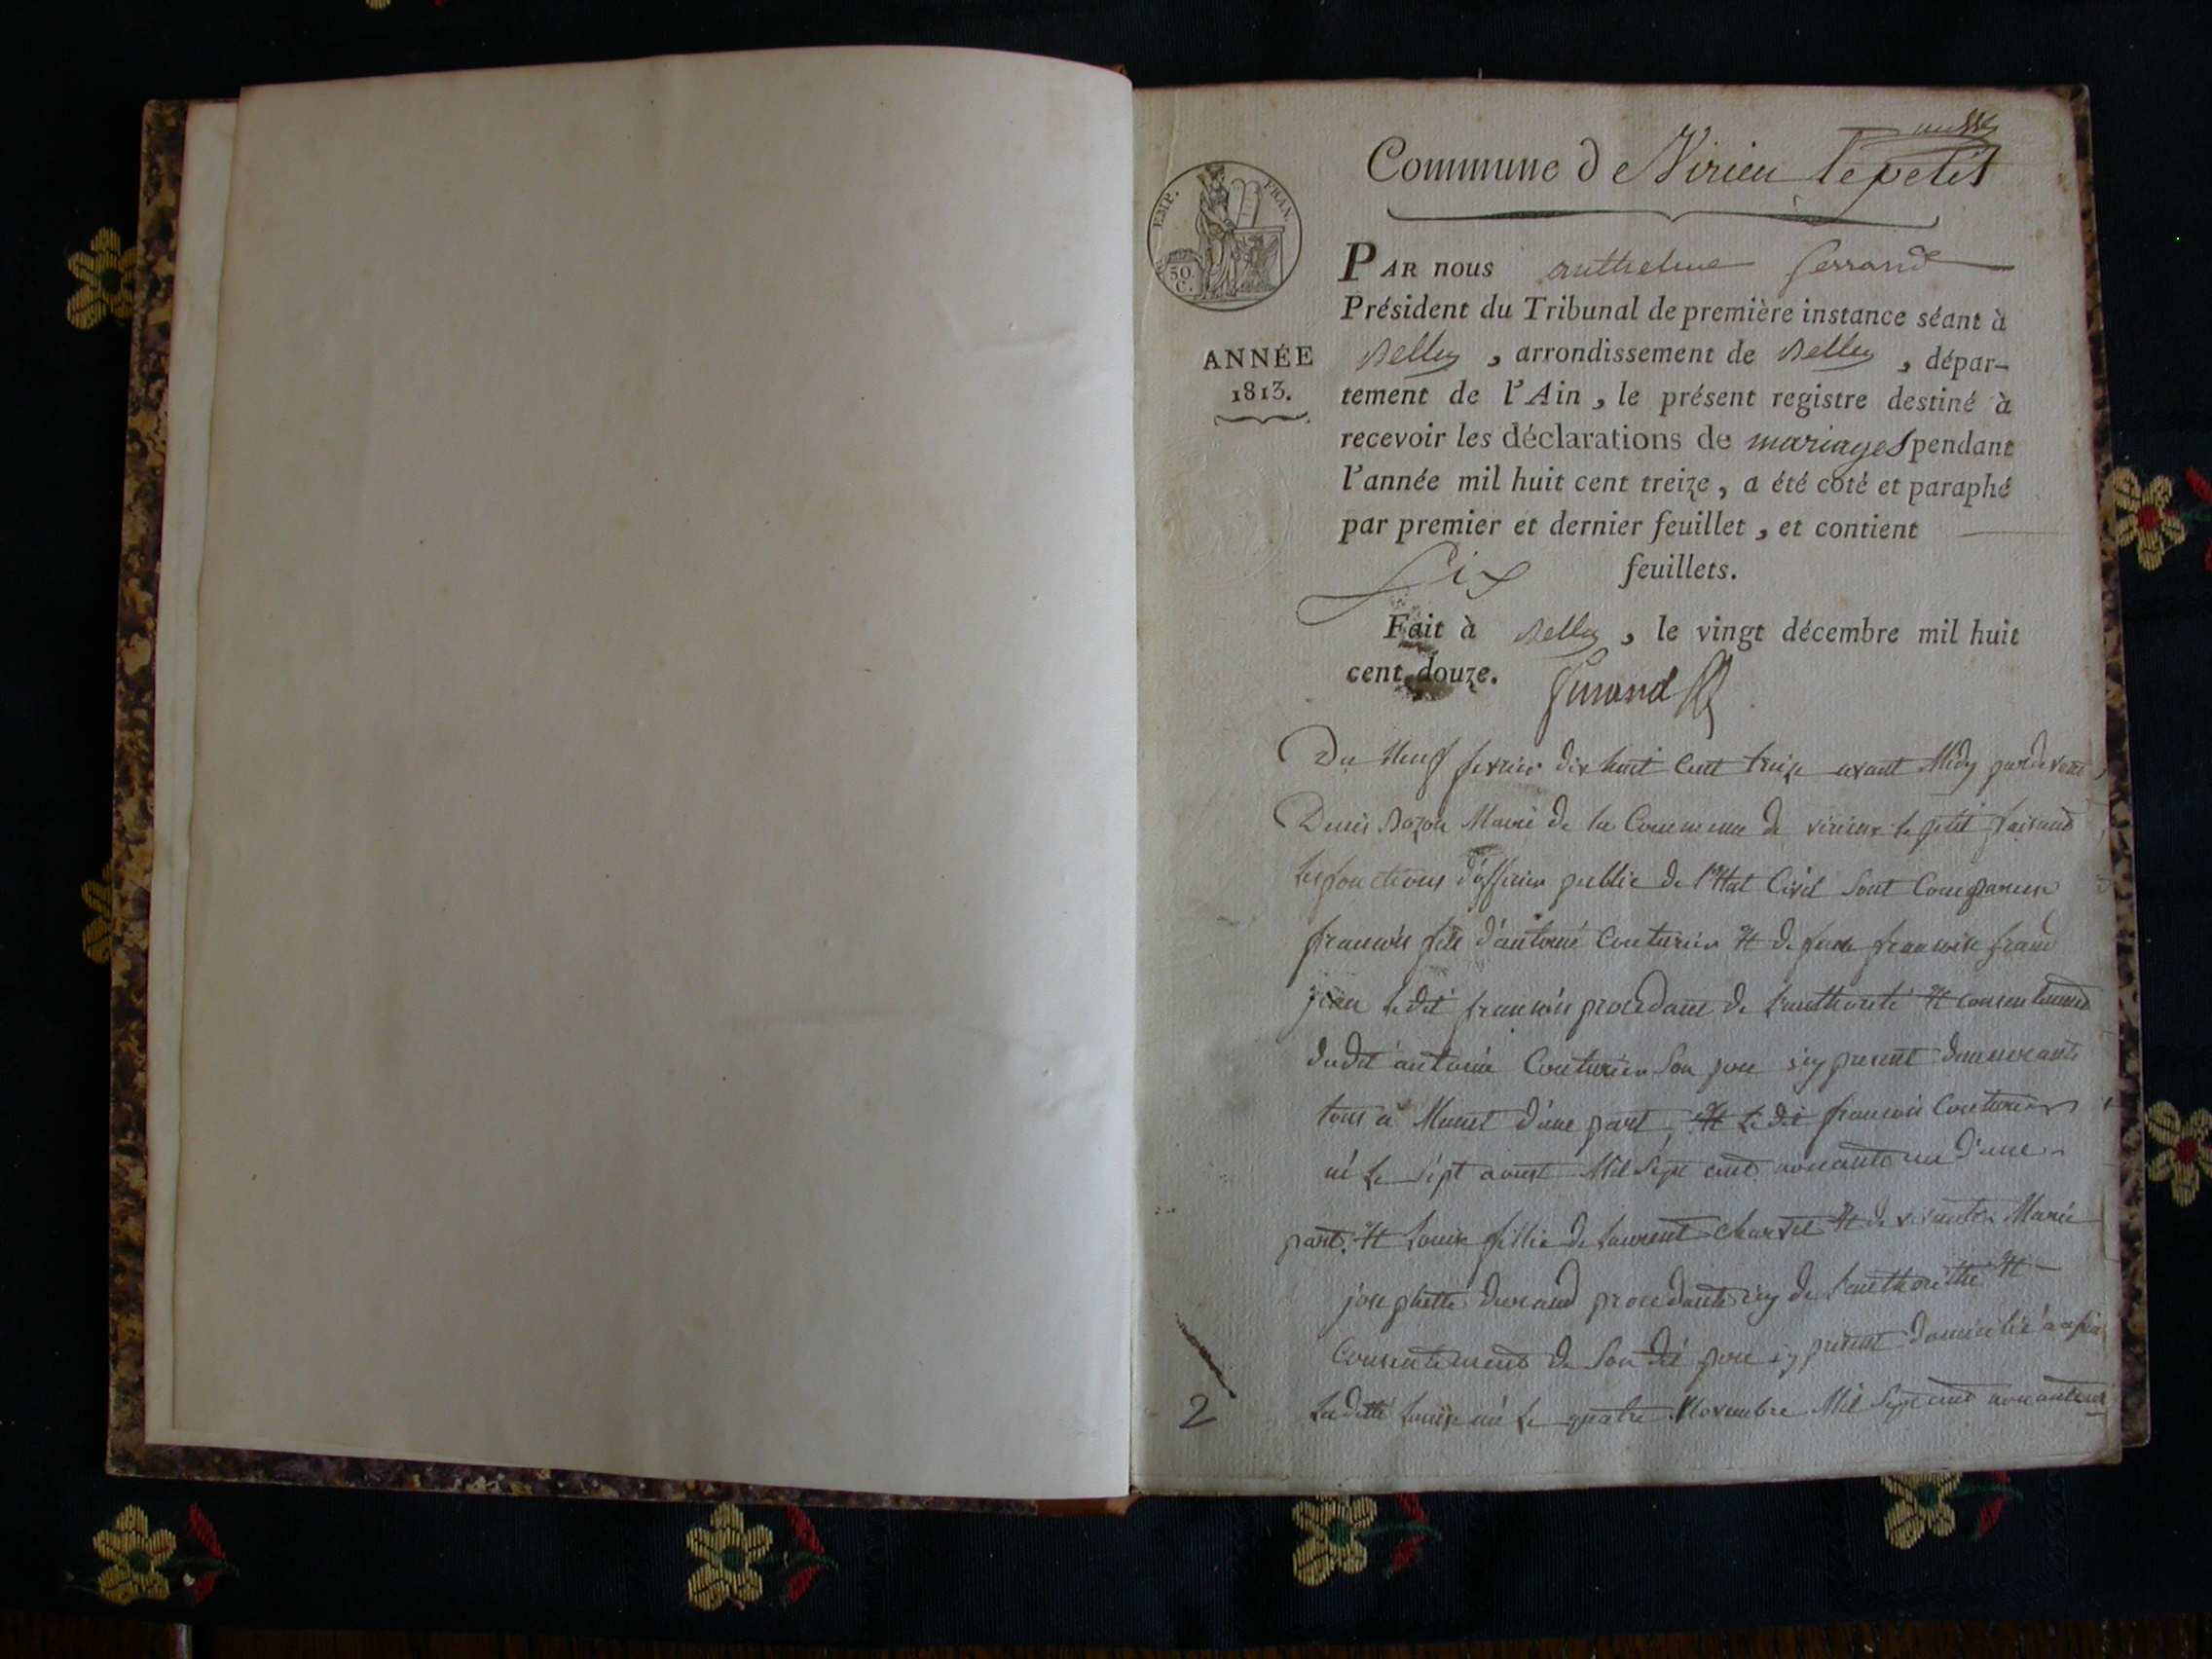 Commune de Virieu le petit
EMP. FRAN.
50.
C.
PAR nous anthelme ferrand
Président du Tribunal de première instance séant à
Belley, arrondissement de Belley, dépar-
ANNÉE
1813.
tement de l'Ain, le présent registre destiné à
recevoir les déclarations de mariages pendant
l'année mil huit cent treize, a été coté et paraphé
par premier et dernier feuillet, et contient
Six feuillets.
Fait à Belley, le vingt décembre mil huit
cent douze.
Du Neuf fevrier dix huit Cent treize avant Midy pardevant
Denis Bozon Maire de la Commune de virieux le petit faisant
les fonctions d'officier public de l'Etat Civil Sont Comparus
francois fils d'antoine Couturier Et de feue francoise frand
jean ledit francois procedant de l'authorité Et consentement
dudit antoine Couturier Son pere icy present demeurants
tous a Munet d'une part, Et ledit francois Couturier
né le sept aoust Mil Sept cent nonante un d'une
part. Et Louise fillie de Laurent charvet Et de vivante Marie
josephette Durand procedante icy de l'authoritté Et
Consentement de Son dit pere icy present domicilié a
Laditte Louise né le quatre Novembre Mil Sept cent nonante
2